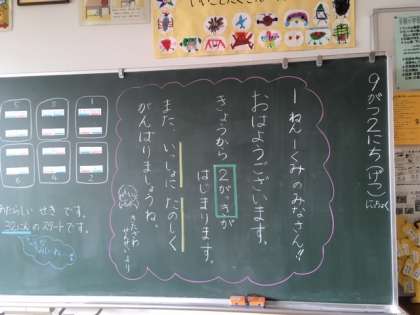 9がつ2にち(げつ)
にっちょく
1ねん1くみのみなさん!!
おはようございます。
きょうから2がっきが
はじまります。
また、いっしょにたのしく
がんばりましょうね。
きたざわ
せんせいより
1
2
3
4
5
6
あたらしいせきです。
32にんのスタートです。